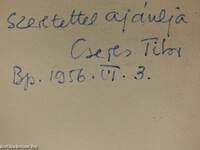 Szeretettel ajánlja
Cseres Tibor
Bp. 1956. VI. 3.